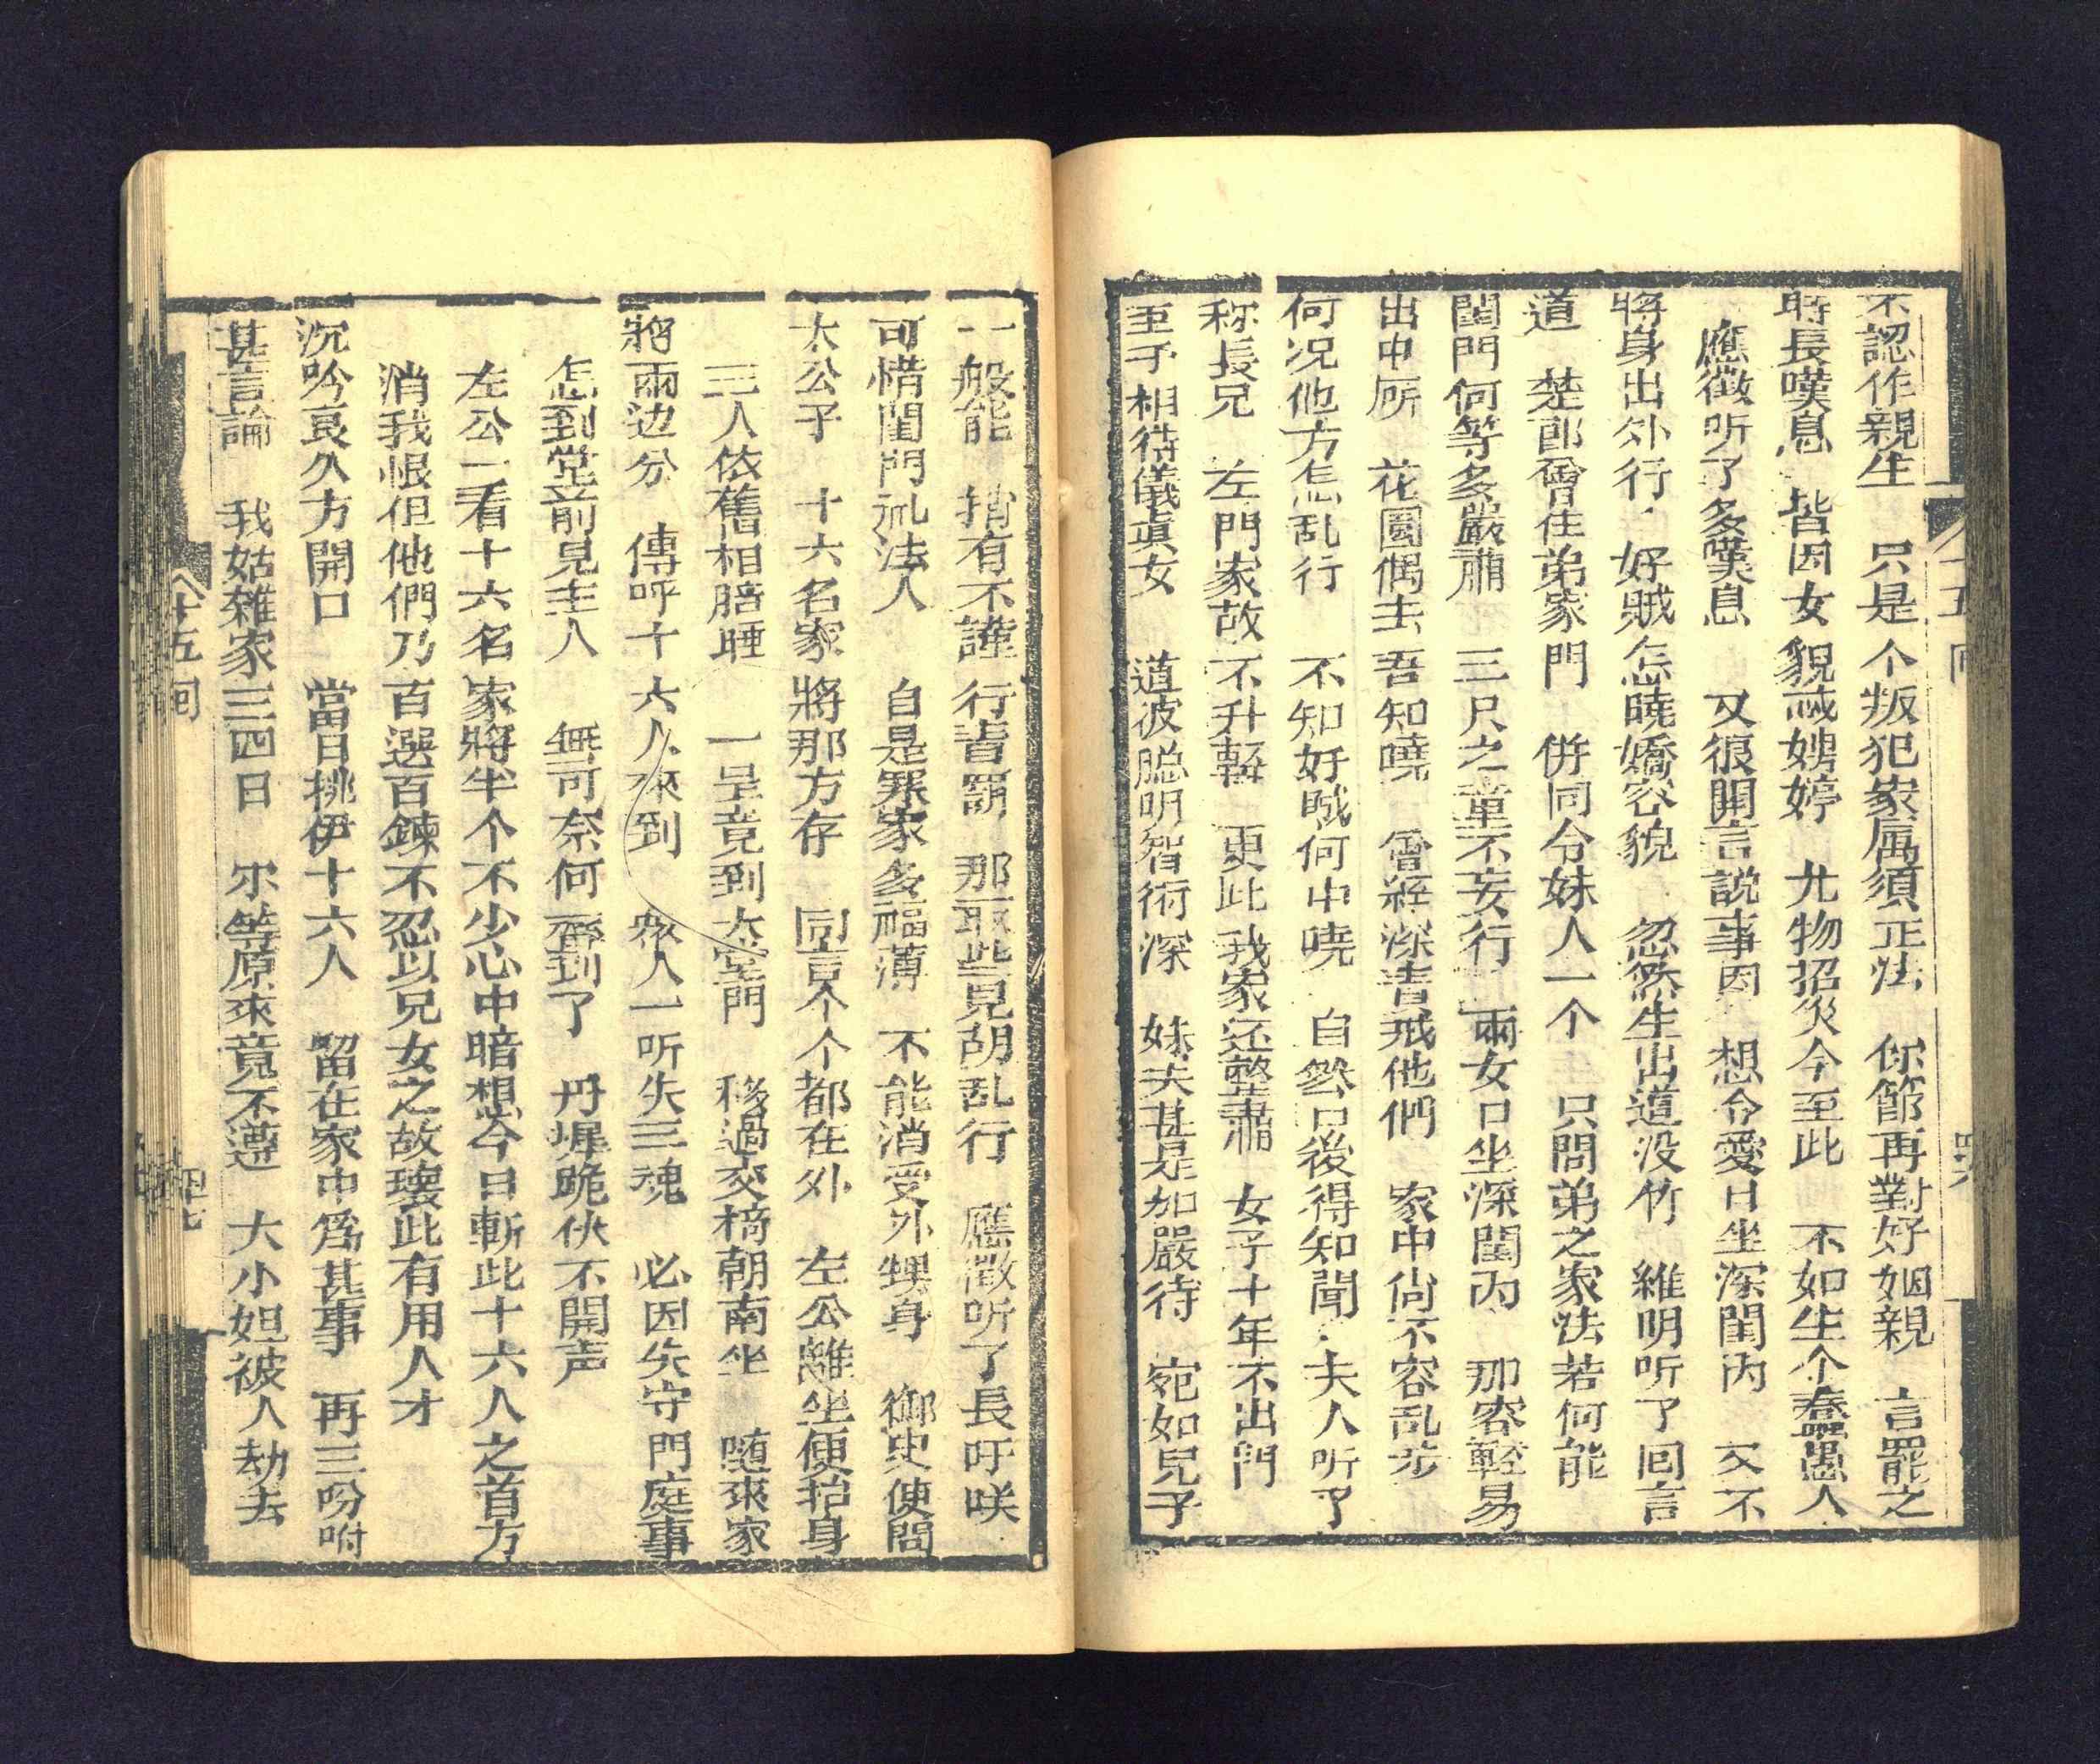 不認作親生　只是个叛犯家属須正法　你節再對好姻親　言罷之
時長嘆息　皆因女貌誠娉婷　尤物招災今至此　不如生个蠢愚人
應徵听了多嘆息　又復開言說事因　想令愛日坐深閨内　又不
將身出外行　好賊怎曉嬌容貌　忽然生出道没竹　維明听了囘言
道　楚郎曾住弟家門　併同令妹人一个　只問弟之家法若何能
閨門何等多嚴肅　三尺之童不妄行　兩女日坐深閨内　那容輕易
出中所　花園偶去吾知曉　曾經深責戒他們　家中尙不容乱步
何况他方怎乱行　不知好賊何由曉　自然日後得知聞　夫人听了
称長兄　左門家故不升輕　更此我家还整肅　女子十年不出門
至于相待儀真女　道彼聪明智術深　妹夫甚是加嚴待　宛如兒子
十五囘
四六
一般能　稍有不謹行責罰　那取些見胡乱行　應徵听了長吁咲
可惜閨門乱法人　自是累家多福薄　不能消受外甥身　御史便問
太公子　十六名家將那方存　同言个个都在外　左公離坐便抬身
三人依舊相陪睡　一呈竟到大堂門　移過交椅朝南坐　随來家
將兩边分　傳呼十六人來到　衆人一听失三魂　必因失守門庭事
怎到堂前見主人　無可奈何齊到了　丹墀跪伏不開声
左公一看十六名家將半个不少心中暗想今日斬此十六人之首方
消我恨但他們乃百選百鍊不忍以兒女之故壞此有用人才
沉吟良久方開口　當日挑伊十六人　留在家中爲甚事　再三吩咐
甚言論　我姑離家三四日　尔等原來竟不遵　大小妲被人劫去
十五囘
四七